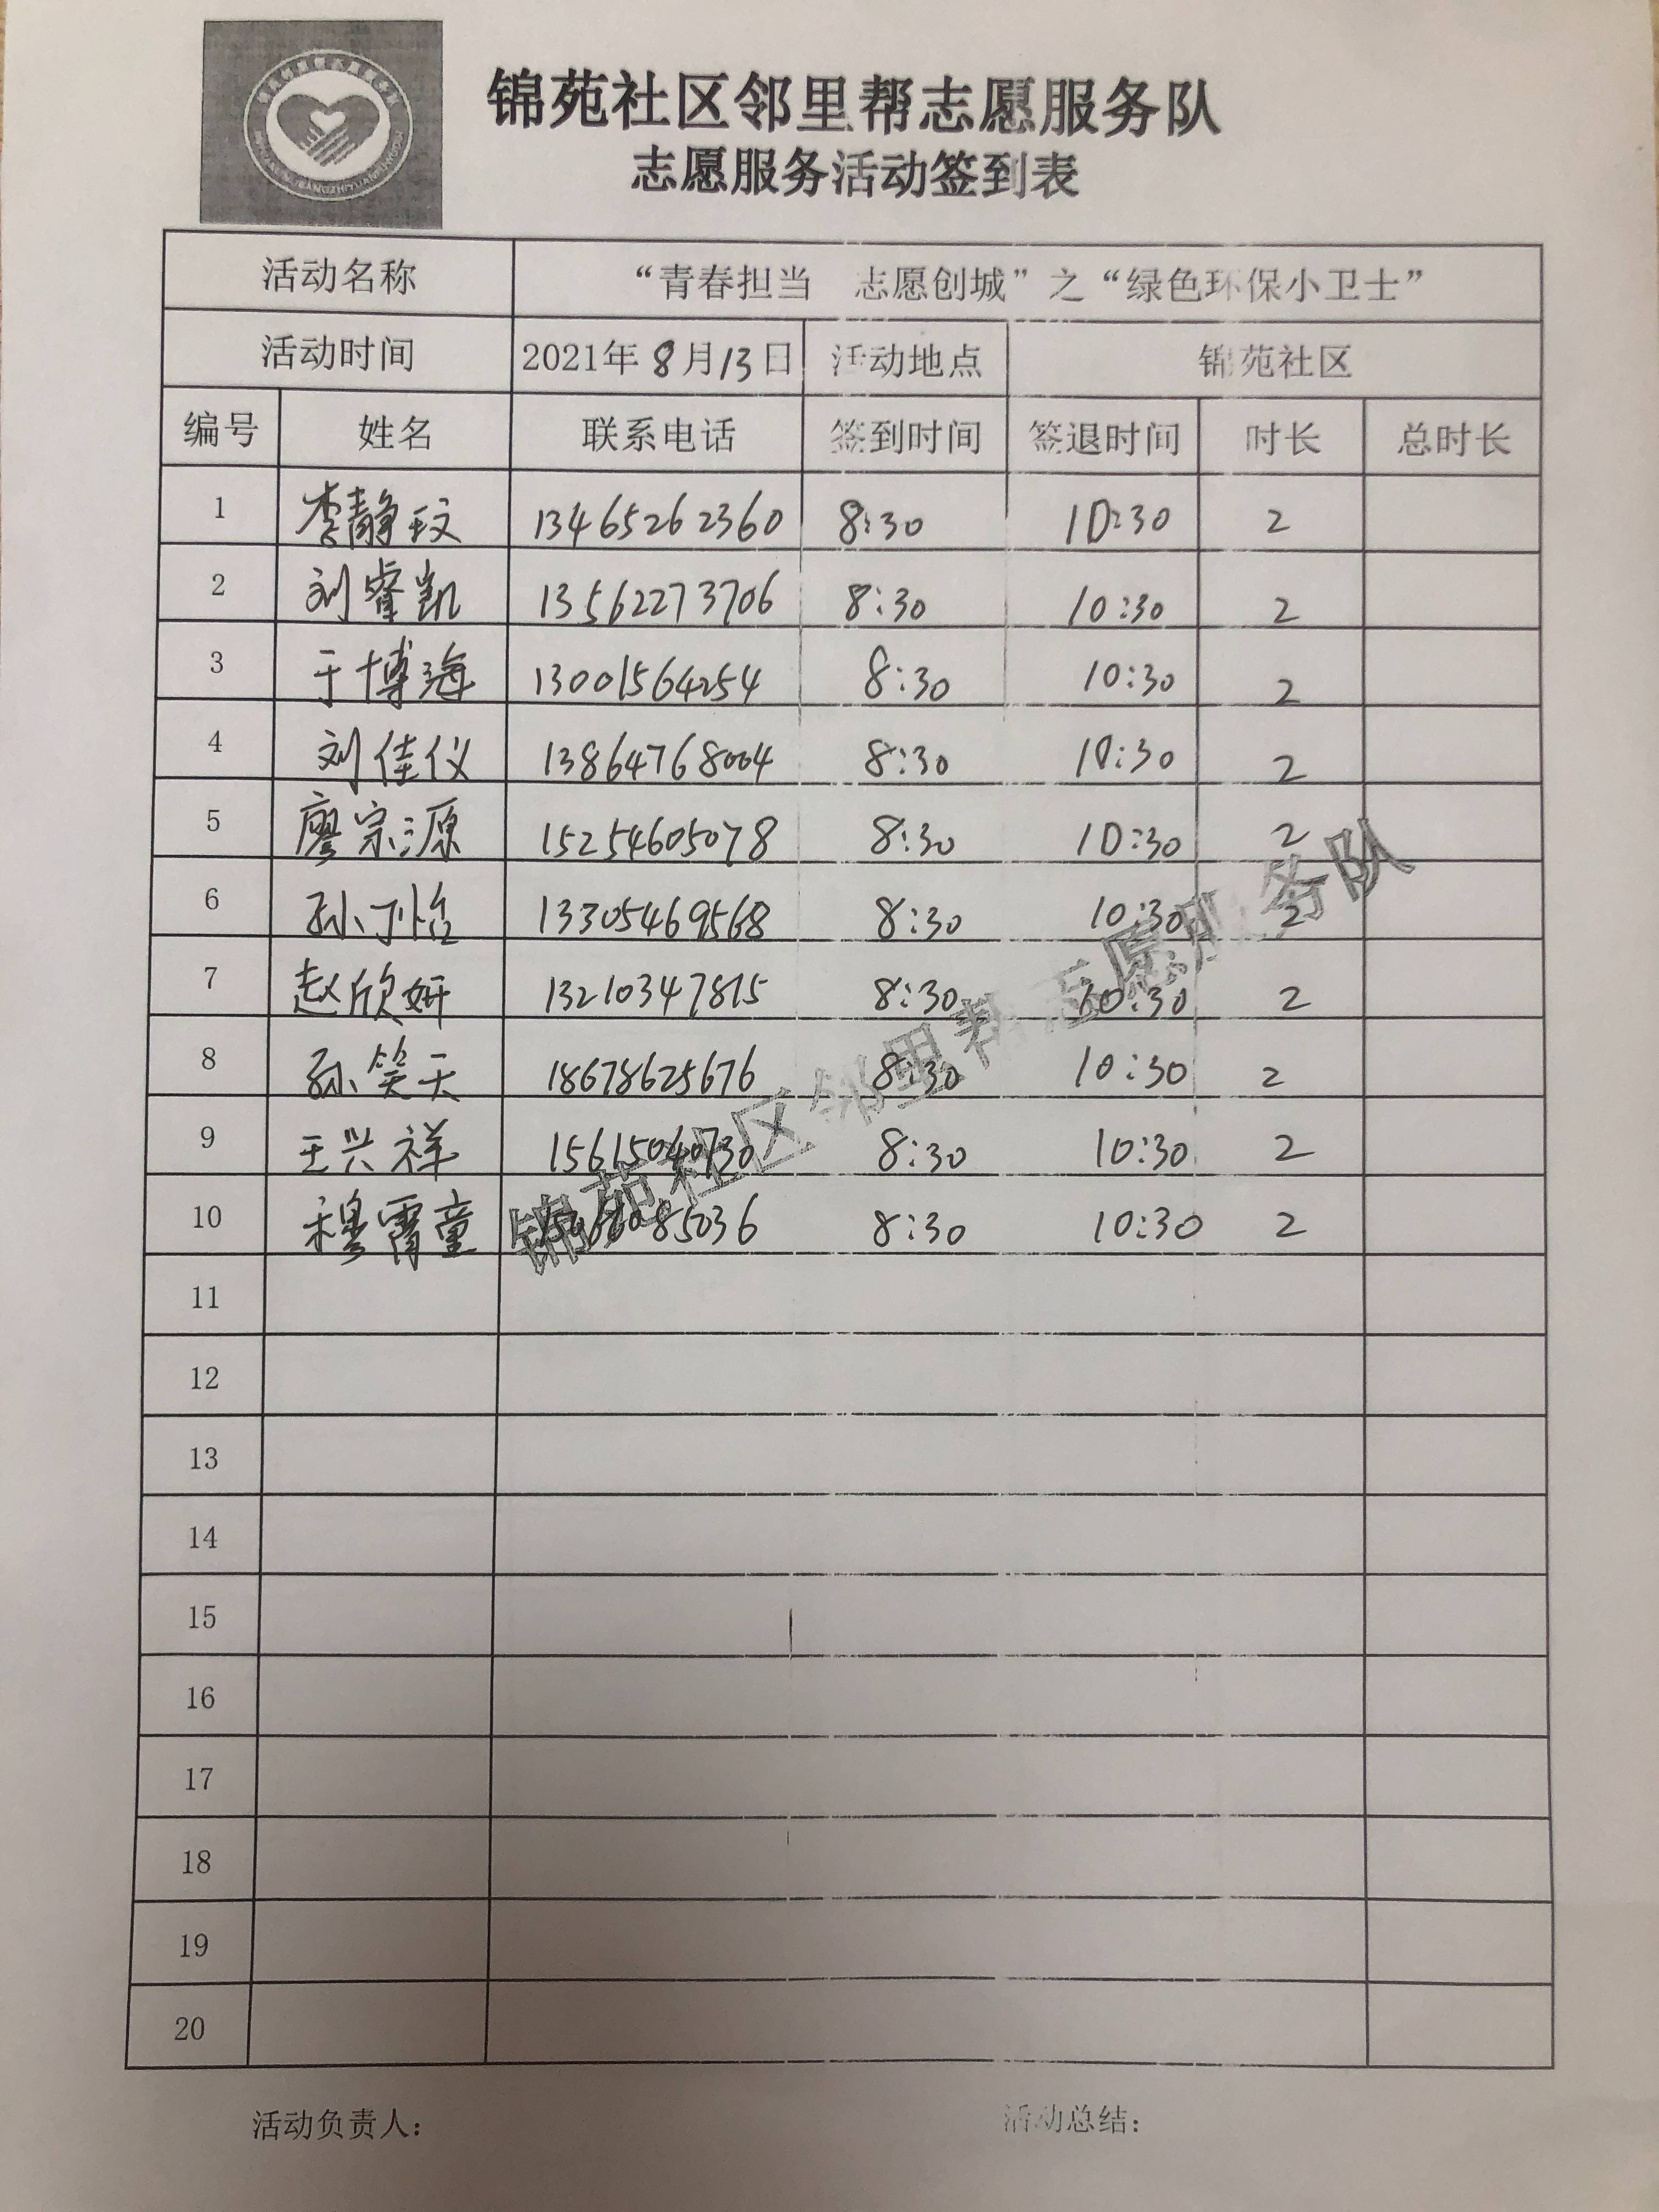 锦苑社区邻里帮志愿服务队
志愿服务活动签到表
活动名称 “青春担当 志愿创城”之“绿色环保小卫士”
活动时间 2021年8月13日 活动地点 锦苑社区
编号 姓名 联系电话 签到时间 签退时间 时长 总时长
1 李静玟 13465262360 8:30 10:30 2
2 刘睿凯 13562273706 8:30 10:30 2
3 于博海 13001564254 8:30 10:30 2
4 刘佳仪 13864768004 8:30 10:30 2
5 廖宗源 15254605078 8:30 10:30 2
6 孙 13305469568 8:30 10:30 2
7 赵欣妍 13210347815 8:30 10:30 2
8 孙笑天 18678625676 8:30 10:30 2
9 王兴祥 8:30 10:30 2
10 穆霄童 8:30 10:30 2
11
12
13
14
15
16
17
18
19
20
锦苑社区邻里帮志愿服务队
活动负责人： 活动总结：